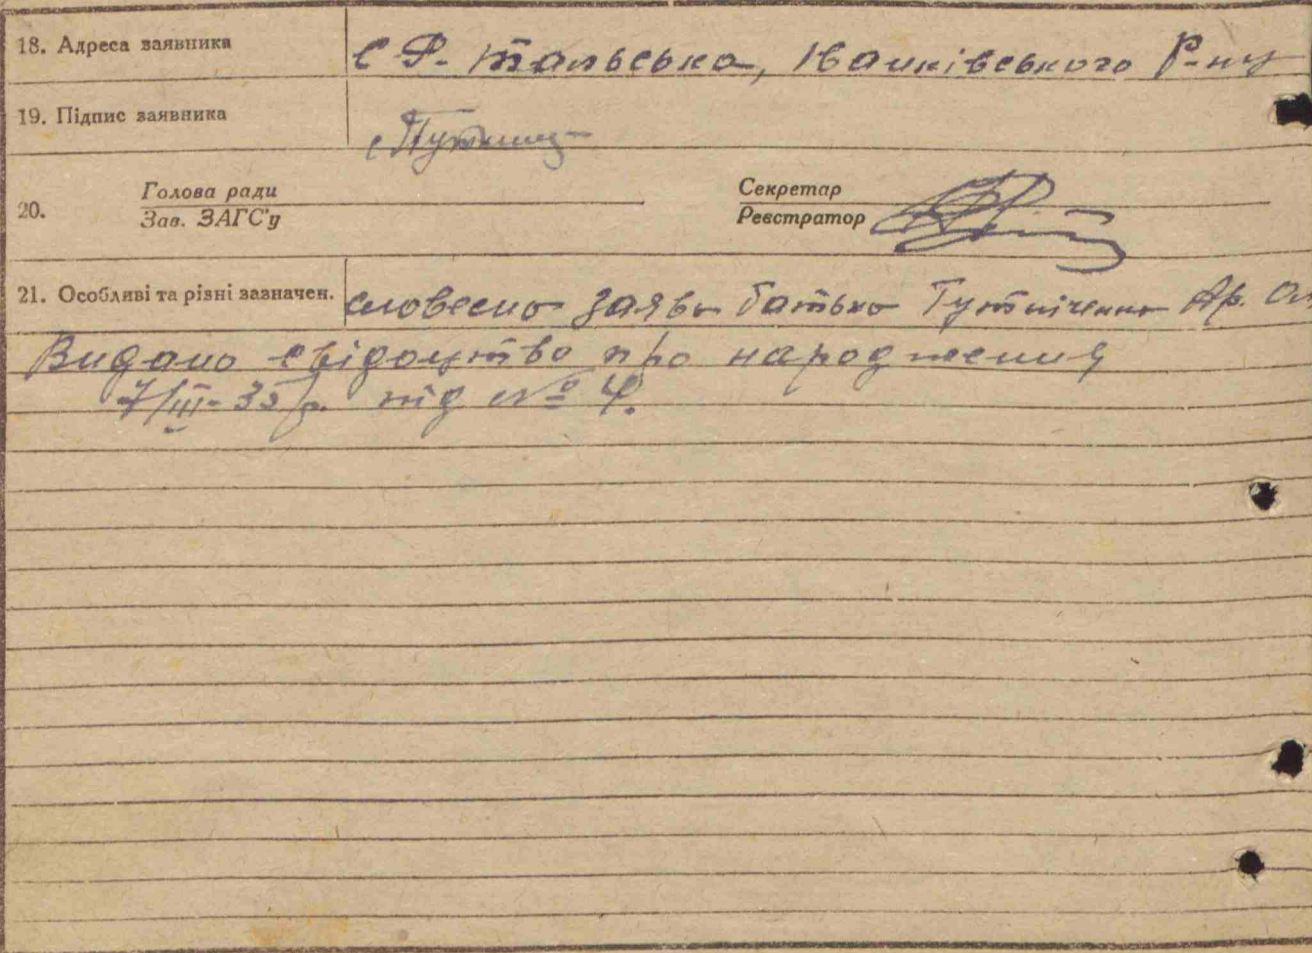 18. Адреса заявника с Р. Тальська, Іванківського Р-ну
19. Підпис заявника
20. Голова ради Секретар
Зав. ЗАГС'у Реєстратор
21. Особливі та різні зазначен. словесно заява батька Гутніченко Ар. Ол
Видано свідоцтво про народження
7/III-35 р. під № 4.